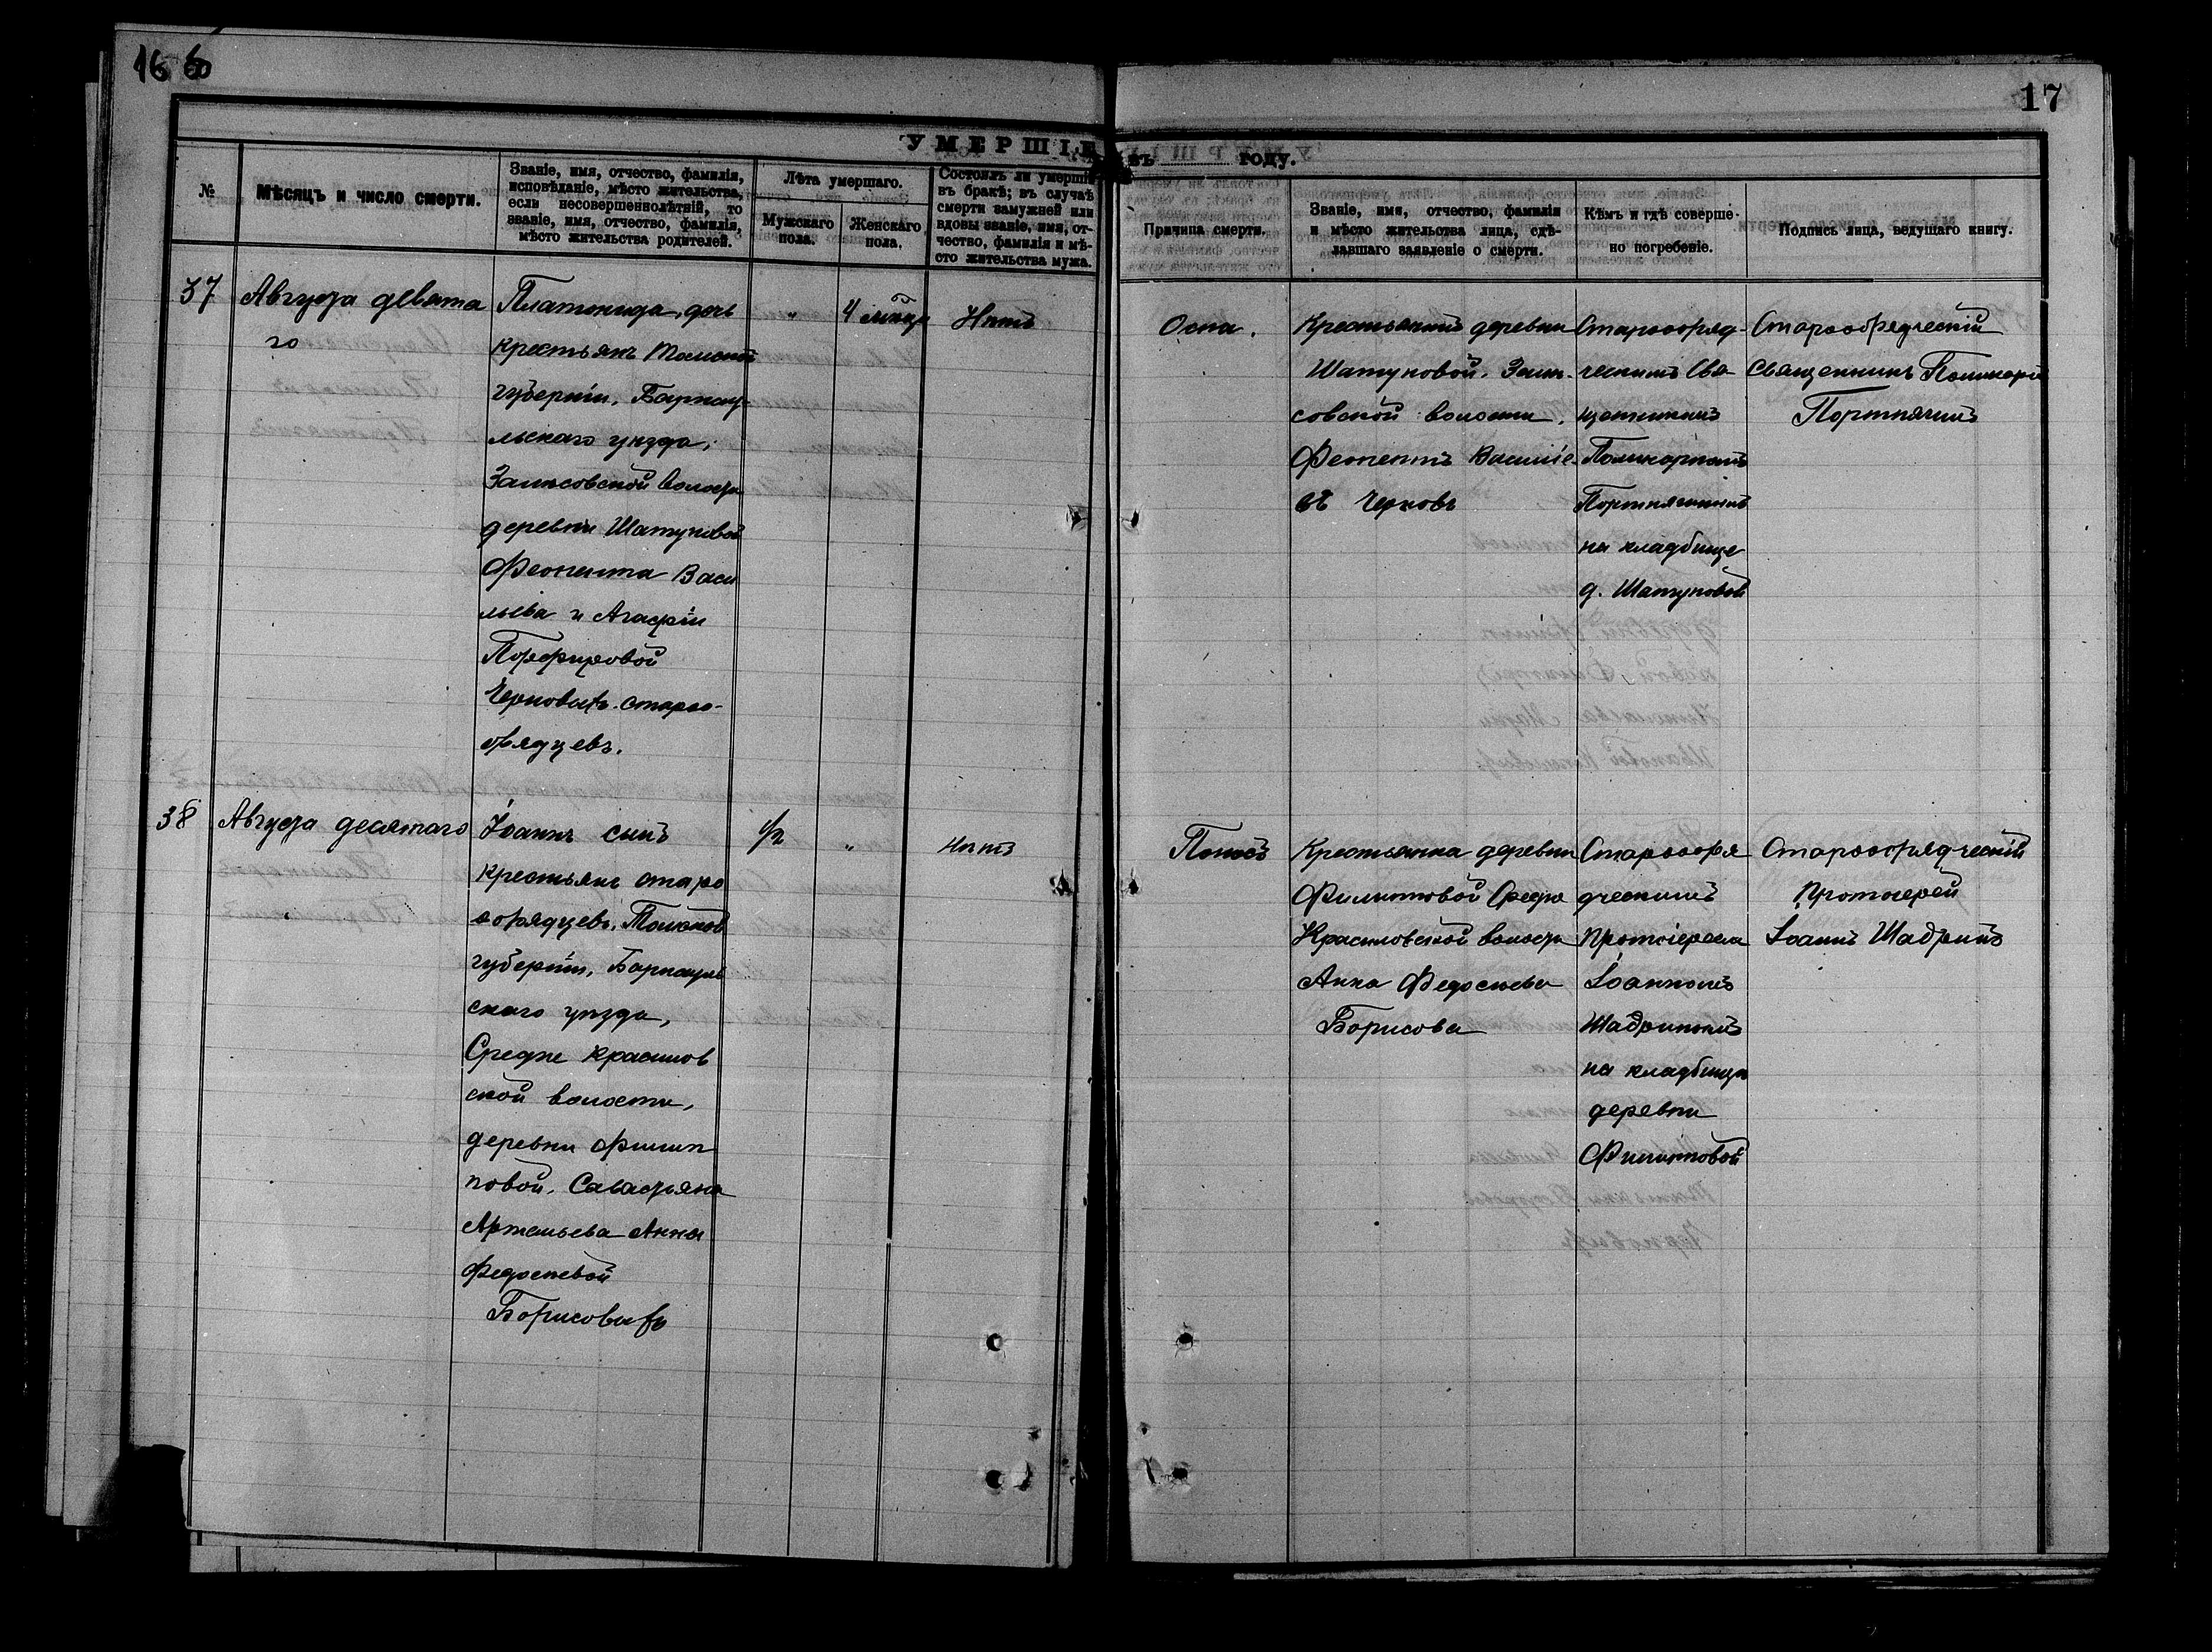 16 об
17
УМЕРШІЕ въ году.
№
Мѣсяцъ и число смерти.
Званіе, имя, отчество, фамилія,
исповѣданіе, мѣсто жительства,
если несовершеннолѣтній, то
званіе, имя, отчество, фамилія,
мѣсто жительства родителей.
Лѣта умершаго.
Мужскаго
пола.
Женскаго
пола.
Состоялъ ли умершій
въ бракѣ; въ случаѣ
смерти замужней или
вдовы званіе, имя, от-
чество, фамилія и мѣ-
сто жительства мужа.
Причина смерти.
Званіе, имя, отчество, фамилія
и мѣсто жительства лица, сдѣ-
лавшаго заявленіе о смерти.
Кѣмъ и гдѣ соверше-
но погребеніе.
Подпись лица, ведущаго книгу.
37
Августа девята
го
Платонида, дочь
крестьянъ Томской
губерніи, Барнау-
льскаго уѣзда,
Залѣсовской волости
деревни Шатуновой
Феопента Васи
льева и Агафіи
Порфировой
Черновыхъ. старо-
обрядцевъ.
"
4 мѣсяца
Нѣтъ
Оспа.
Крестьянинъ деревни
Шатуновой, Залѣ-
совской волости,
Феопентъ Василіе-
въ Черновъ
Старообряд-
ческимъ Свя-
щенникомъ
Поликарпомъ
Портнягинымъ
на кладбище
д. Шатуновой
Старообрядческій
Священникъ Поликарпъ
Портнягинъ
38
Августа десятаго
Іоаннъ сынъ
крестьянъ старо
обрядцевъ, Томской
губерніи, Барнауль
скаго уѣзда,
Средне Красилов
ской волости,
деревни Филип
повой, Савастьяна
Артемьева Анны
Федосѣевой
Борисовыхъ
1/2
"
Нѣтъ
Поносъ
Крестьянка деревни
Филиповой Средне
Красиловской волости
Анна Федосѣева
Борисова
Старообря
дческимъ
Протоіереем
Іоанномъ
Шадринымъ
на кладбище
деревни
Филиповой
Старообрядческій
Протоіерей
Іоаннъ Шадринъ